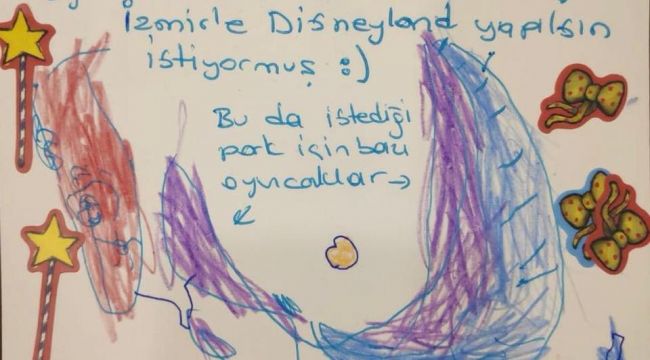 İzmir'e Disneyland yapılsın
istiyormuş :)
Bu da istediği
park için bazı
oyuncaklar →